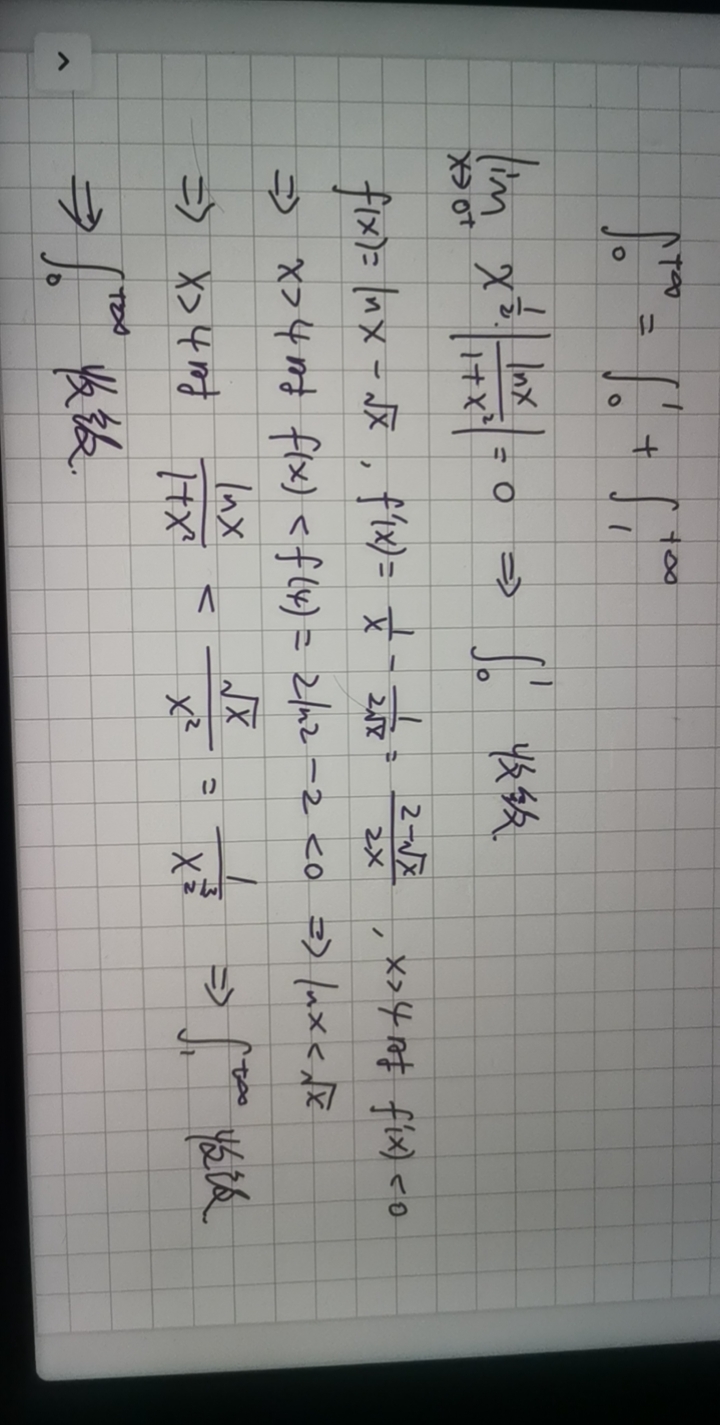 ∫₀^{+∞} = ∫₀^1 + ∫₁^{+∞}
lim_{x→0⁺} x^{1/2}·|lnx/(1+x²)| = 0 ⇒ ∫₀^1 收敛.
f(x)= lnx - √x, f'(x)= 1/x - 1/(2√x) = (2-√x)/(2x), x>4时 f'(x)<0
⇒ x>4时 f(x)<f(4)= 2ln2-2<0 ⇒ lnx<√x
⇒ x>4时 lnx/(1+x²) < √x/x² = 1/x^{3/2} ⇒ ∫₁^{+∞} 收敛.
⇒ ∫₀^{+∞} 收敛.